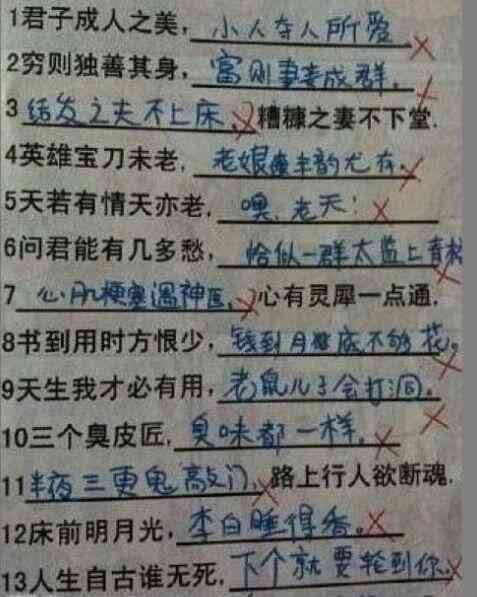 1君子成人之美，小人夺人所爱
2穷则独善其身，富则妻妾成群。
3结发之夫不上床，糟糠之妻不下堂.
4英雄宝刀未老，老娘丰韵尤存。
5天若有情天亦老，噢，老天！
6问君能有几多愁，恰似一群太监上青楼
7心肌梗塞遇神医，心有灵犀一点通，
8书到用时方恨少，钱到月底不够花。
9天生我才必有用，老鼠儿子会打洞。
10三个臭皮匠，臭味都一样。
11半夜三更鬼敲门，路上行人欲断魂.
12床前明月光，李白睡得香。
13人生自古谁无死，下个就要轮到你。